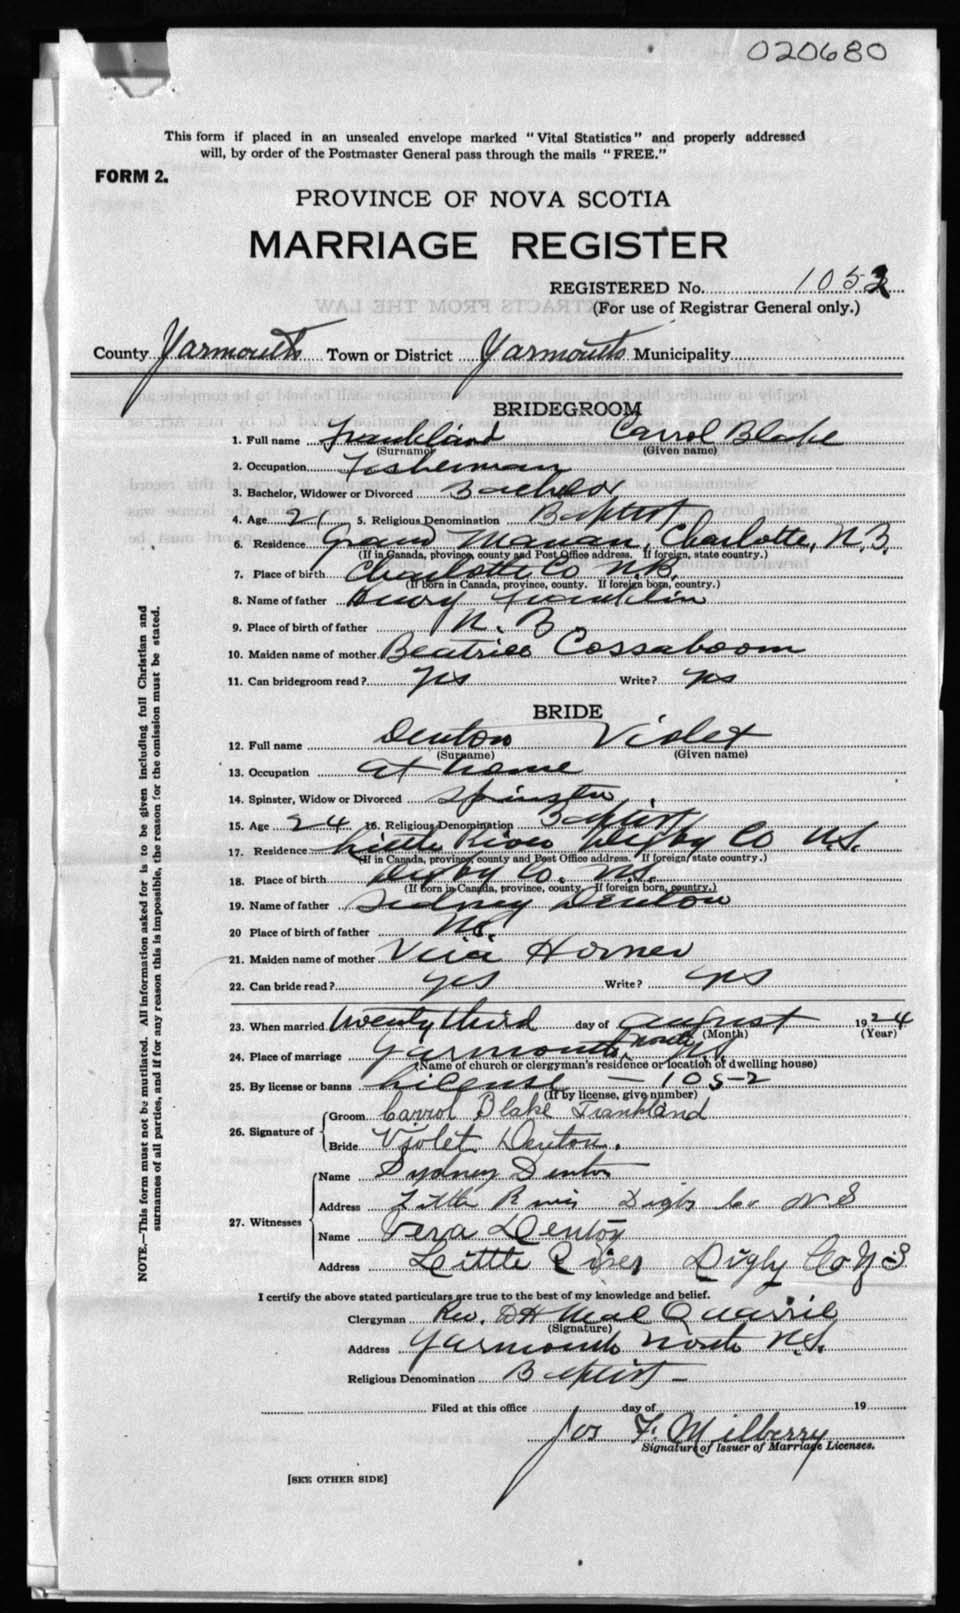 020680
This form if placed in an unsealed envelope marked "Vital Statistics" and properly addressed
will, by order of the Postmaster General pass through the mails "FREE."
FORM 2.
PROVINCE OF NOVA SCOTIA
MARRIAGE REGISTER
REGISTERED No. 1052
(For use of Registrar General only.)
County Yarmouth Town or District Yarmouth Municipality
BRIDEGROOM
1. Full name Frankland Carrol Blake
(Surname) (Given name)
2. Occupation Fisherman
3. Bachelor, Widower or Divorced Bachelor
4. Age 21 5. Religious Denomination Baptist
6. Residence Grand Manan, Charlotte, N.B.
(If in Canada, province, county and Post Office address. If foreign, state country.)
7. Place of birth Charlotte Co N.B.
(If born in Canada, province, county. If foreign born, country.)
8. Name of father Franklin
9. Place of birth of father N. B.
10. Maiden name of mother Beatrice Cossaboom
11. Can bridegroom read? yes Write? yes
BRIDE
12. Full name Denton Violet
(Surname) (Given name)
13. Occupation at home
14. Spinster, Widow or Divorced Spinster
15. Age 24 16. Religious Denomination Baptist
17. Residence Little River Digby Co N.S.
(If in Canada, province, county and Post Office address. If foreign state country.)
18. Place of birth Digby Co. N.S.
(If born in Canada, province, county. If foreign born, country.)
19. Name of father Sidney Denton
20 Place of birth of father N.S.
21. Maiden name of mother Horner
22. Can bride read? yes Write? yes
23. When married twenty third day of august 1924
(Month) (Year)
24. Place of marriage Yarmouth North N.S.
(Name of church or clergyman's residence or location of dwelling house)
25. By license or banns License — 1052
(If by license, give number)
26. Signature of Groom Carrol Blake Frankland
Bride Violet Denton.
27. Witnesses Name Sydney Denton
Address Little River Digby Co N S
Name Vera Denton
Address Little River Digby Co N.S
I certify the above stated particulars are true to the best of my knowledge and belief.
Clergyman Rev. D H Mac Quarrie
(Signature)
Address Yarmouth North N.S.
Religious Denomination Baptist —
Filed at this office day of 19
Jos F. Milberry
Signature of Issuer of Marriage Licenses.
[SEE OTHER SIDE]
NOTE.—This form must not be mutilated. All information asked for is to be given including full Christian and
surnames of all parties, and if for any reason this is impossible, the reason for the omission must be stated.